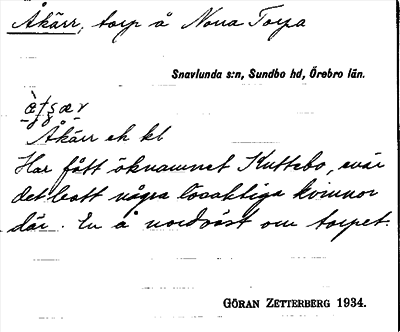 Åkärr, torp å Norra Torpa
Snavlunda s:n, Sundbo hd, Örebro län.
Åkärr ek kl
Har fått öknamnet Kuttebo, enär
det bott några lösaktiga kvinnor
där. En å nordväst om torpet.
GÖRAN ZETTERBERG 1934.